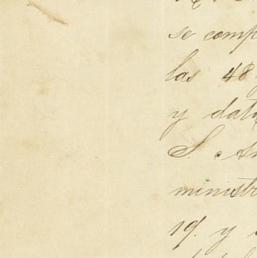 se comp
las 48
y data
S. An
ministr
19. y